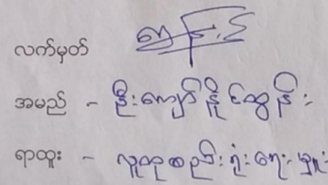 လက်မှတ်
အမည် - ဦးကျော်နိုင်ထွန်း
ရာထူး - လူထုစည်းရုံးရေးမှူး